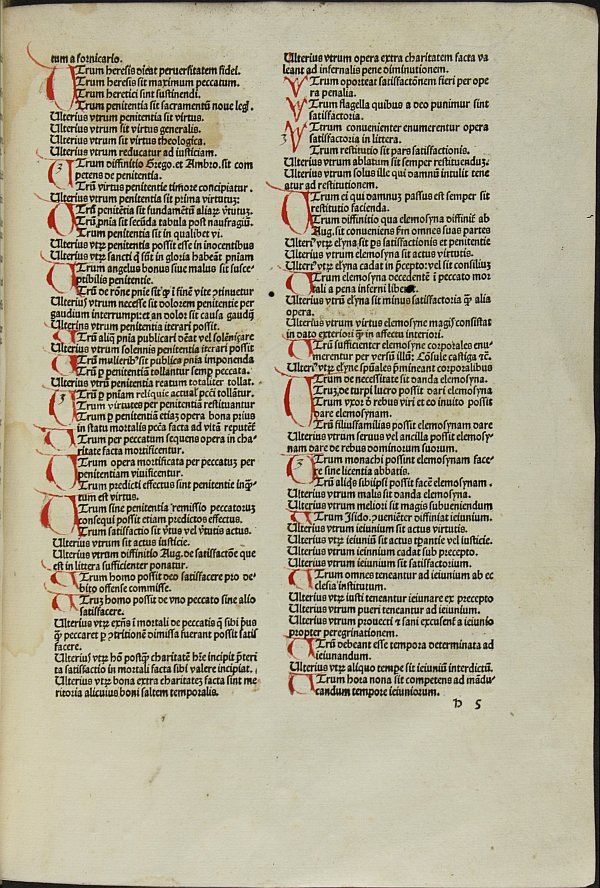 tum a fornicario.
UTrum heresis diẽat peruersitatem fidei.
Trum heresis sit maximum peccatum.
Trum heretici sint sustinendi.
Trum penitentia sit sacramentũ noue legꝭ.
Ulterius vtrum penitentia sit virtus.
Ulterius vtrum sit virtus generalis.
Ulterius vtrum sit virtus theologica.
Ulterius vtrum reducatur ad iusticiam.
UTrum diffinitio Grego. et Ambro. sit com
petens de penitentia.
Trũ virtus penitentie timore concipiatur.
Ulterius vtrum penitentia sit prima virtutuꝫ
UTrũ penitẽtia sit fundamẽtũ aliaꝝ v̓tutuꝫ.
Trũ pñia sit secũda tabula post naufragiũ.
Trum penitentia sit in qualibet vi.
Ulterius vtꝝ penitentia possit esse in inocentibus
Ulterius vtꝝ sancti q̇ sũt in gloria habeãt pñiam
UTrum angelus bonus siue malus sit susce-
ptibilis penitentie.
Trũ de rõne pñie sit ꝙ ĩ finẽ vite ↄ̃tinuetur
Ulterius vtrum necesse sit dolorem penitentie per
gaudium interrumpi: et an dolor sit causa gaudij
Ulterius vtrum penitentia iterari possit.
UTrũ aliq̃ pñia publicari debeat vel solẽniȝare
Ulterius vtrum solennis penitentia iterari possit
UTrũ mulieribꝰ sit publica pñia imponenda
Trũ ꝑ penitentiã tollantur semp peccata.
Ulterius vtrũ penitentia reatum totaliter tollat.
UTrũ ꝑ pniam reliquie actualꝭ pctĩ tollãtur.
Trum virtutes per penitentiã restituantur
Trum ꝑ penitentiã etiaꝫ opera bona prius
in statu mortalis pctĩ facta ad vitã reputẽt
UTrum per peccatum sequens opera in cha-
ritate facta mortificentur.
UTrum opera mortificata per peccatuꝫ per
penitentiam viuificentur.
Trum predicti effectus sint penitentie inꝙ̃-
tum est virtus.
UTrum sine penitentia remissio peccatoruꝫ
consequi possit etiam predictos effectus.
Trum satisfactio sit v̓tus vel v̓tutis actus.
Ulterius vtrum sit actus iusticie.
Ulterius vtrum diffinitio Aug. de satisfactõe que
est in littera sufficienter ponatur.
UTrum homo possit deo satisfacere pro de-
bito offense commisse.
UTruꝫ homo possit de vno peccato sine alio
satisfacere.
Ulterius vtrum exñs ĩ mortali de peccatis q̇ sibi ꝓus
ꝙ peccaret ꝑ ↄ̃tritionẽ dimissa fuerant possit satis
facere.
Ulterius vtꝝ hõ postꝙ̃ charitatẽ hr̃e incipit p̃teri
ta satisfactio in mortali facta sibi valere incipiat.
Ulterius vtꝝ bona extra charitateꝫ facta sint me
ritoria alicuius boni saltem temporalis.
Ulterius vtrum opera extra charitatem facta va
leant ad infernalis pene diminutionem.
UTrum oporteat satisfactõnem fieri per ope
ra penalia.
UTrum flagella quibus a deo punimur sint
satisfactoria.
UTrum conuenienter enumerentur opera
satisfactoria in littera.
Trum restitutio sit pars satisfactionis.
Ulterius vtrum ablatum sit semper restituenduꝫ.
Ulterius vtrum solus ille qui damnũ intulit tene
atur ad restitutionem.
UTrum ei qui damnuꝫ passus est semper sit
restitutio facienda.
Trum diffinitio qua elemosyna diffiniẽ ab
Aug. sit conueniens ẜm omnes suas partes
Ulteriꝰ vtꝝ el̃yna sit ꝑs satisfactionis et penitentie
Ulterius vtrum elemosyna sit actus virtutis.
Ulteriꝰ vtꝝ el̃yna cadat in p̃cepto: vel sit consiliuꝫ
UTrum elemosyna decedentẽ ĩ peccato mor
tali a pena inferni liberet.
Ulterius vtrũ el̃yna sit minus satisfactoria ꝙ̃ alia
opera.
Ulterius vtrum virtus elemosyne magis consistat
in dato exteriori ꝙ̃ in affectu interiori.
UTrum sufficienter elemosyne corporales enu-
merentur per versũ illũ: Cõsule castiga ⁊c.
Ulteriꝰ vtꝝ el̃yne spũales p̃mineant corporalibus
UTrum de necessitate sit danda elemosyna.
Truꝫ de turpi lucro possit dari elemosyna
Trum vxor d̃ rebus viri et eo inuito possit
dare elemosynam.
Trũ filiusfamilias possit elemosynam dare
Ulterius vtrum seruus vel ancilla possit elemosy-
nam dare de rebus dominorum suorum.
UTrum monachi possint elemosynam face-
re sine licentia abbatis.
Trũ aliq̇s sibiipsi possit facẽ elemosynam.
Ulterius vtrum malis sit danda elemosyna.
Ulterius vtrum meliori sit magis subueniendum
UTrum Isido. ↄueniẽter diffiniat ieiunium.
Ulterius vtrum ieiunium sit actus virtutis.
Ulterius vtꝝ ieiuniũ sit actus tꝑantie vel iusticie.
Ulterius vtrum ieiunium cadat sub precepto.
Ulterius vtrum ieiunium sit satisfactorium.
UTrum omnes teneantur ad ieiunium ab ec
clesia institutum.
Ulterius vtꝝ iusti teneantur ieiunare ex precepto
Ulterius vtrum pueri teneantur ad ieiunium.
Ulterius vtrum prouecti ⁊ sani excusenẽ a ieiunio
propter peregrinationem.
UTrũ debeant esse tempora determinata ad
ieiunandum.
Ulterius vtꝝ aliquo tempe sit ieiuniũ interdictũ.
UTrum hora nona sit competens ad mãdu-
candum tempore ieiuniorum.
D 5